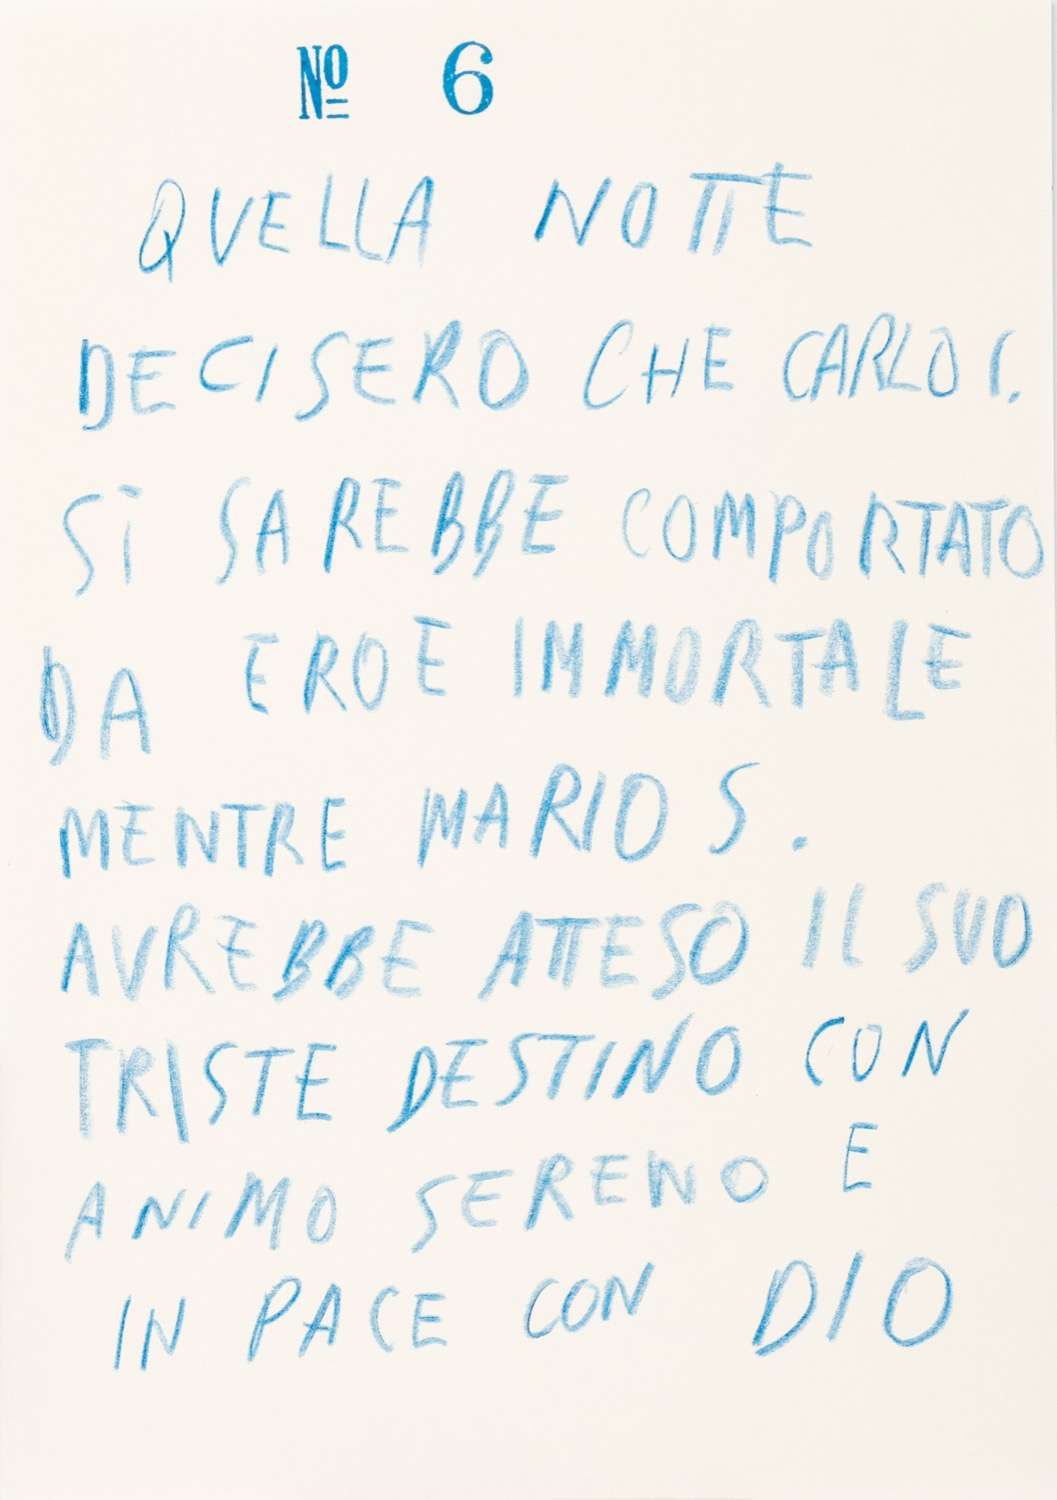 Nº 6
QUELLA NOTTE
DECISERO CHE CARLO C.
SI SAREBBE COMPORTATO
DA EROE IMMORTALE
MENTRE MARIO S.
AVREBBE ATTESO IL SUO
TRISTE DESTINO CON
ANIMO SERENO E
IN PACE CON DIO